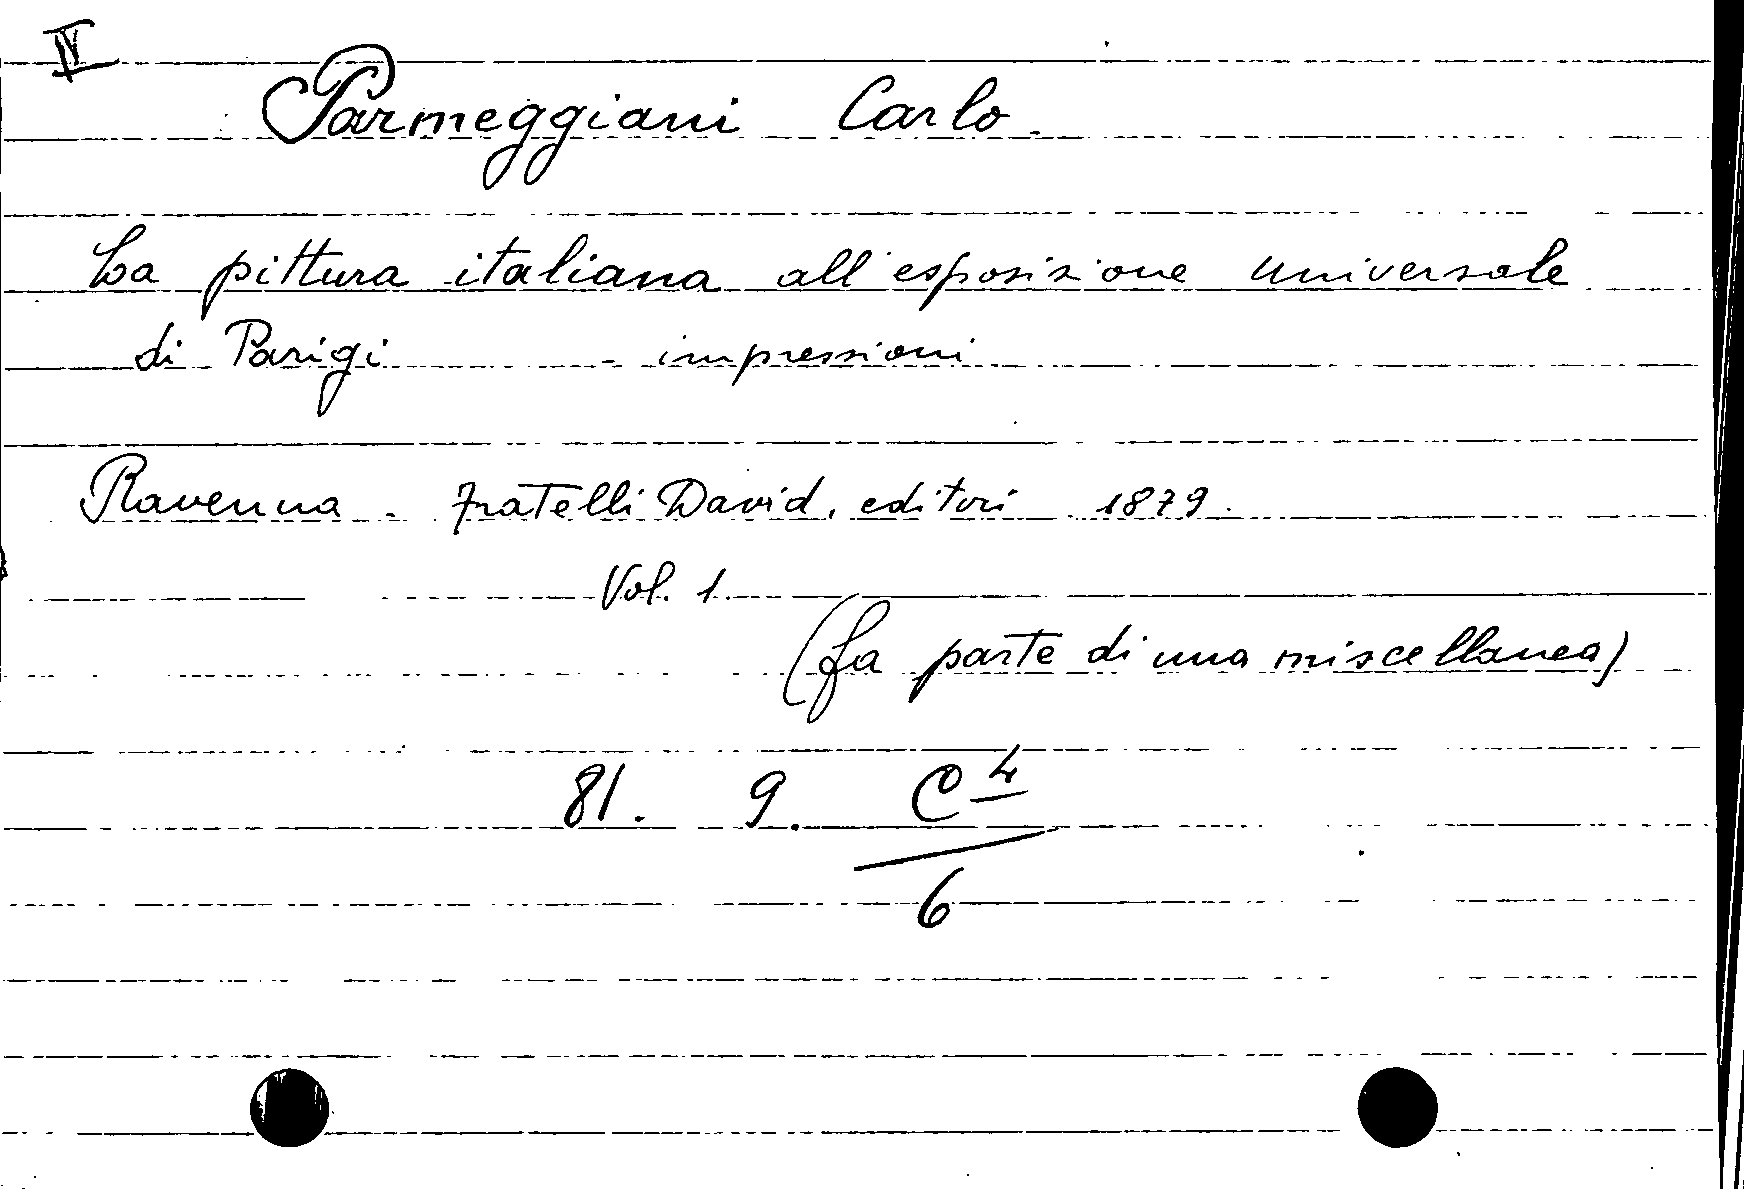 IV
Parmeggiani Carlo.
La pittura italiana all'esposizione universale
di Parigi - impressioni
Ravenna - Fratelli David, editori 1879.
Vol. 1.
(fa parte di una miscellanea)
81. 9. C 4
6